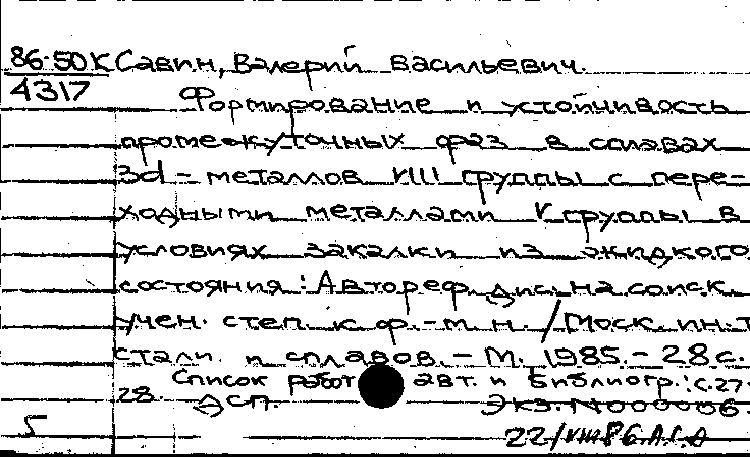 86-50К Савин, Валерий Васильевич.
4317
Формирование и устойчивость
промежуточных фаз в сплавах
3d - металлов VIII группы с пере-
ходными металлами V группы в
условиях закалки из жидкого
состояния: Автореф. дис. на соиск.
учен. степ. к. ф.-м. н. / Моск. ин-т
стали и сплавов. - М. 1985. - 28 с.
Список работ авт. и библиогр.: с. 27-
28. ДСП. Экз. N000006.
5
22/VIII 86